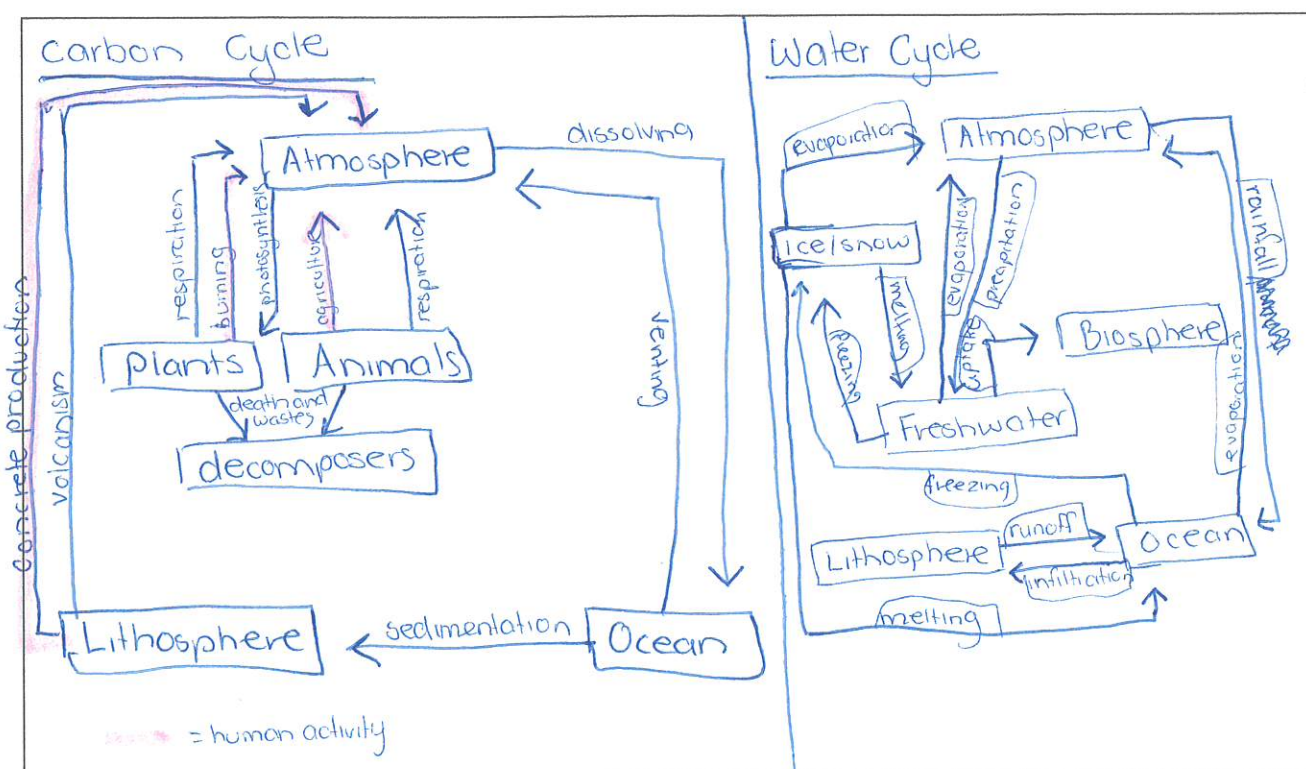 Carbon Cycle
Atmosphere
dissolving
respiration
burning
photosynthesis
agriculture
respiration
plants
Animals
death and
wastes
decomposers
concrete production
volcanism
venting
Lithosphere
sedimentation
Ocean
= human activity
Water Cycle
evaporation
Atmosphere
ice/snow
evaporation
precipitation
rainfall
melting
freezing
uptake
Biosphere
evaporation
Freshwater
freezing
Lithosphere
runoff
Ocean
infiltration
melting